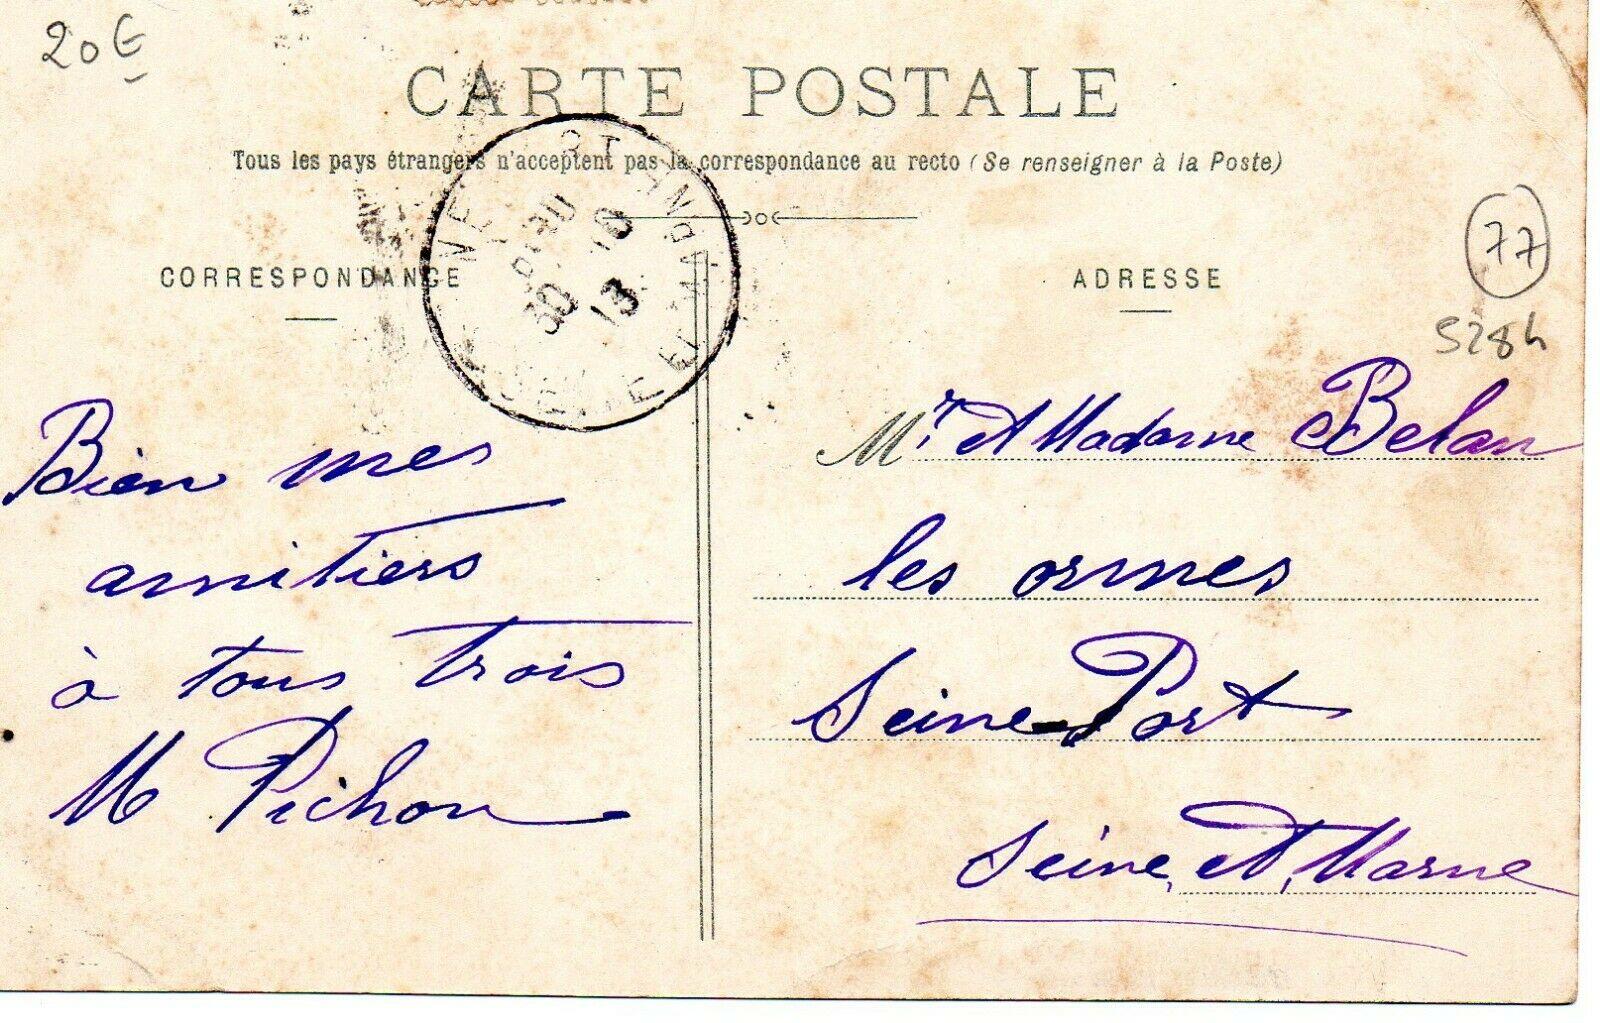 20€
CARTE POSTALE
Tous les pays étrangers n'acceptent pas la correspondance au recto (Se renseigner à la Poste)
CORRESPONDANCE
Bien mes
amitiers
à tous trois
M Pichon
30
13
ADRESSE
77
5284
Mr. et Madame Belan
les ormes
Seine-Port
Seine et Marne